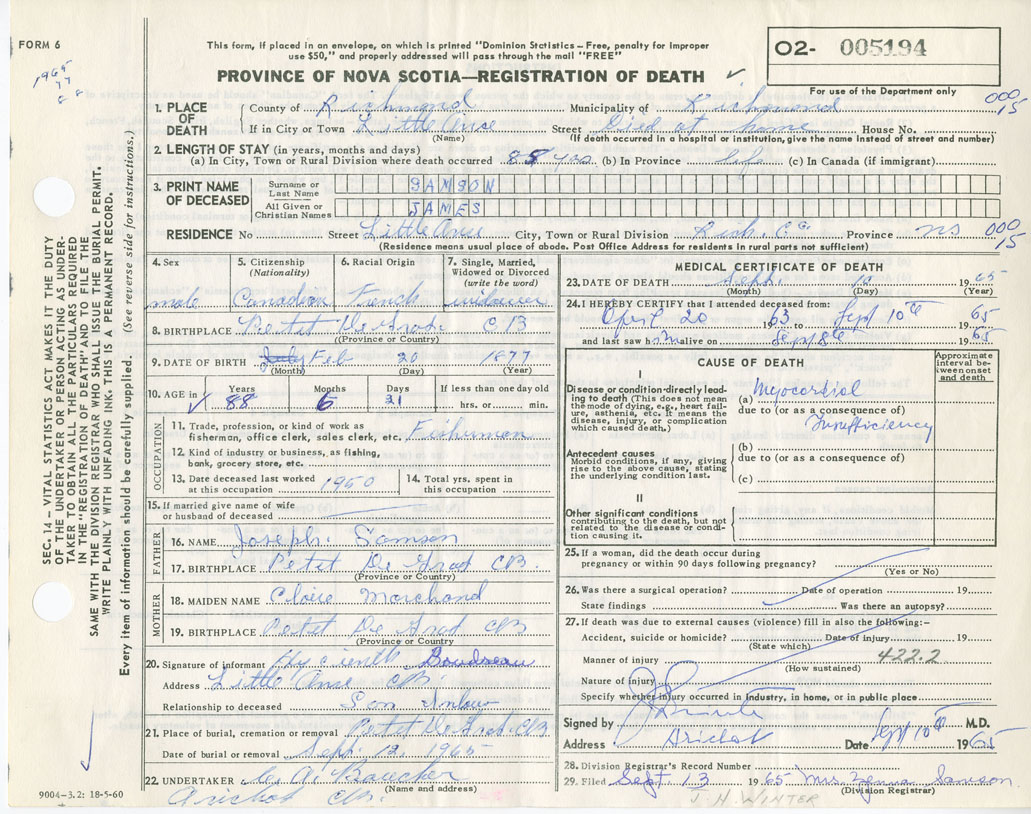 FORM 6
1965
77
88
This form, if placed in an envelope, on which is printed "Dominion Statistics – Free, penalty for improper
use $50," and properly addressed will pass through the mail "FREE"
PROVINCE OF NOVA SCOTIA—REGISTRATION OF DEATH ✓
02- 005194
For use of the Department only
000
15
1. PLACE OF DEATH
County of Richmond Municipality of Richmond
If in City or Town Little Anse Street Died at home House No.
(Name) (If death occurred in a hospital or institution, give the name instead of street and number)
2. LENGTH OF STAY (in years, months and days)
(a) In City, Town or Rural Division where death occurred 88 yrs (b) In Province life (c) In Canada (if immigrant)
3. PRINT NAME OF DECEASED
Surname or Last Name SAMSON
All Given or Christian Names JAMES
RESIDENCE No Street Little Anse City, Town or Rural Division Rich. Co. Province NS
000
15
(Residence means usual place of abode. Post Office Address for residents in rural parts not sufficient)
4. Sex male
5. Citizenship (Nationality) Canadian
6. Racial Origin French
7. Single, Married, Widowed or Divorced (write the word) widower
8. BIRTHPLACE Petit De Grat. C B
(Province or Country)
9. DATE OF BIRTH July Feb 20 1877
(Month) (Day) (Year)
10. AGE in Years Months Days If less than one day old
✓ 88 6 21 hrs. or min.
OCCUPATION
11. Trade, profession, or kind of work as
fisherman, office clerk, sales clerk, etc. Fisherman
12. Kind of industry or business, as fishing,
bank, grocery store, etc.
13. Date deceased last worked at this occupation 1950
14. Total yrs. spent in this occupation
15. If married give name of wife
or husband of deceased
FATHER
16. NAME Joseph Samson
17. BIRTHPLACE Petit De Grat CB.
(Province or Country)
MOTHER
18. MAIDEN NAME Claire Marchand
19. BIRTHPLACE Petit De Grat CB
(Province or Country
20. Signature of informant Hycienth Boudreau
Address Little Anse CB.
Relationship to deceased Son Inlaw
21. Place of burial, cremation or removal Petit De Grat. CB
Date of burial or removal Sept. 12, 1965
22. UNDERTAKER C. A. Boucher
(Name and address)
Arichat CB.
9004–3.2: 18-5-60
MEDICAL CERTIFICATE OF DEATH
23. DATE OF DEATH Sept. 10 1965
(Month) (Day) (Year)
24. I HEREBY CERTIFY that I attended deceased from:
April 20 1963 Sept 10th 1965
and last saw him alive on Sept 8th 1965
CAUSE OF DEATH
Approximate interval between onset and death
I
Disease or condition directly leading to death (This does not mean the mode of dying, e.g., heart failure, asthenia, etc. It means the disease, injury, or complication which caused death.)
(a) Myocardial
due to (or as a consequence of)
Insufficiency
Antecedent causes
Morbid conditions, if any, giving rise to the above cause, stating the underlying condition last.
(b)
due to (or as a consequence of)
(c)
II
Other significant conditions
contributing to the death, but not related to the disease or condition causing it.
25. If a woman, did the death occur during
pregnancy or within 90 days following pregnancy?
(Yes or No)
26. Was there a surgical operation? Date of operation 19
State findings Was there an autopsy?
27. If death was due to external causes (violence) fill in also the following:–
Accident, suicide or homicide? Date of injury 19
(State which)
Manner of injury 422.2
(How sustained)
Nature of injury
Specify whether injury occurred in Industry, in home, or in public place
Signed by M.D.
Address Arichat Date Sept 10th 1965
28. Division Registrar's Record Number
29. Filed Sept 13 1965 Mrs Samson
(Division Registrar)
J. H. WINTER
SEC. 14 – VITAL STATISTICS ACT MAKES IT THE DUTY
OF THE UNDERTAKER OR PERSON ACTING AS UNDER-
TAKER TO OBTAIN ALL THE PARTICULARS REQUIRED
IN THE "REGISTRATION OF DEATH" AND TO FILE THE
SAME WITH THE DIVISION REGISTRAR WHO SHALL ISSUE THE BURIAL PERMIT.
WRITE PLAINLY WITH UNFADING INK. THIS IS A PERMANENT RECORD.
Every item of information should be carefully supplied. (See reverse side for instructions.)